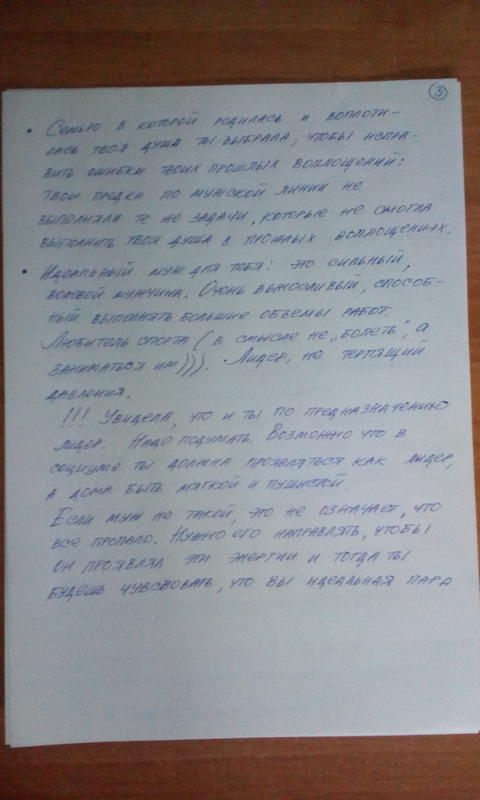 3
• Семью в которой родилась и воплоти-
лась твоя душа ты выбрала, чтобы испра-
вить ошибки твоих прошлых воплощений:
твои предки по мужской линии не
выполняли те же задачи, которые не смогла
выполнить твоя душа в прошлых воплощениях.
• Идеальный муж для тебя: это сильный,
волевой мужчина. Очень выносливый, способ-
ный выполнять большие объемы работ.
Любитель спорта (в смысле не „болеть", а
заниматься им))). Лидер, не терпящий
давления.
!!! Увидела, что и ты по предназначению
лидер. Надо подумать. Возможно что в
социуме ты должна проявляться как лидер,
а дома быть мягкой и пушистой.
Если муж не такой, это не означает, что
всё пропало. Нужно его направлять, чтобы
он проявлял эти энергии и тогда ты
будешь чувсвовать, что вы идеальная пара